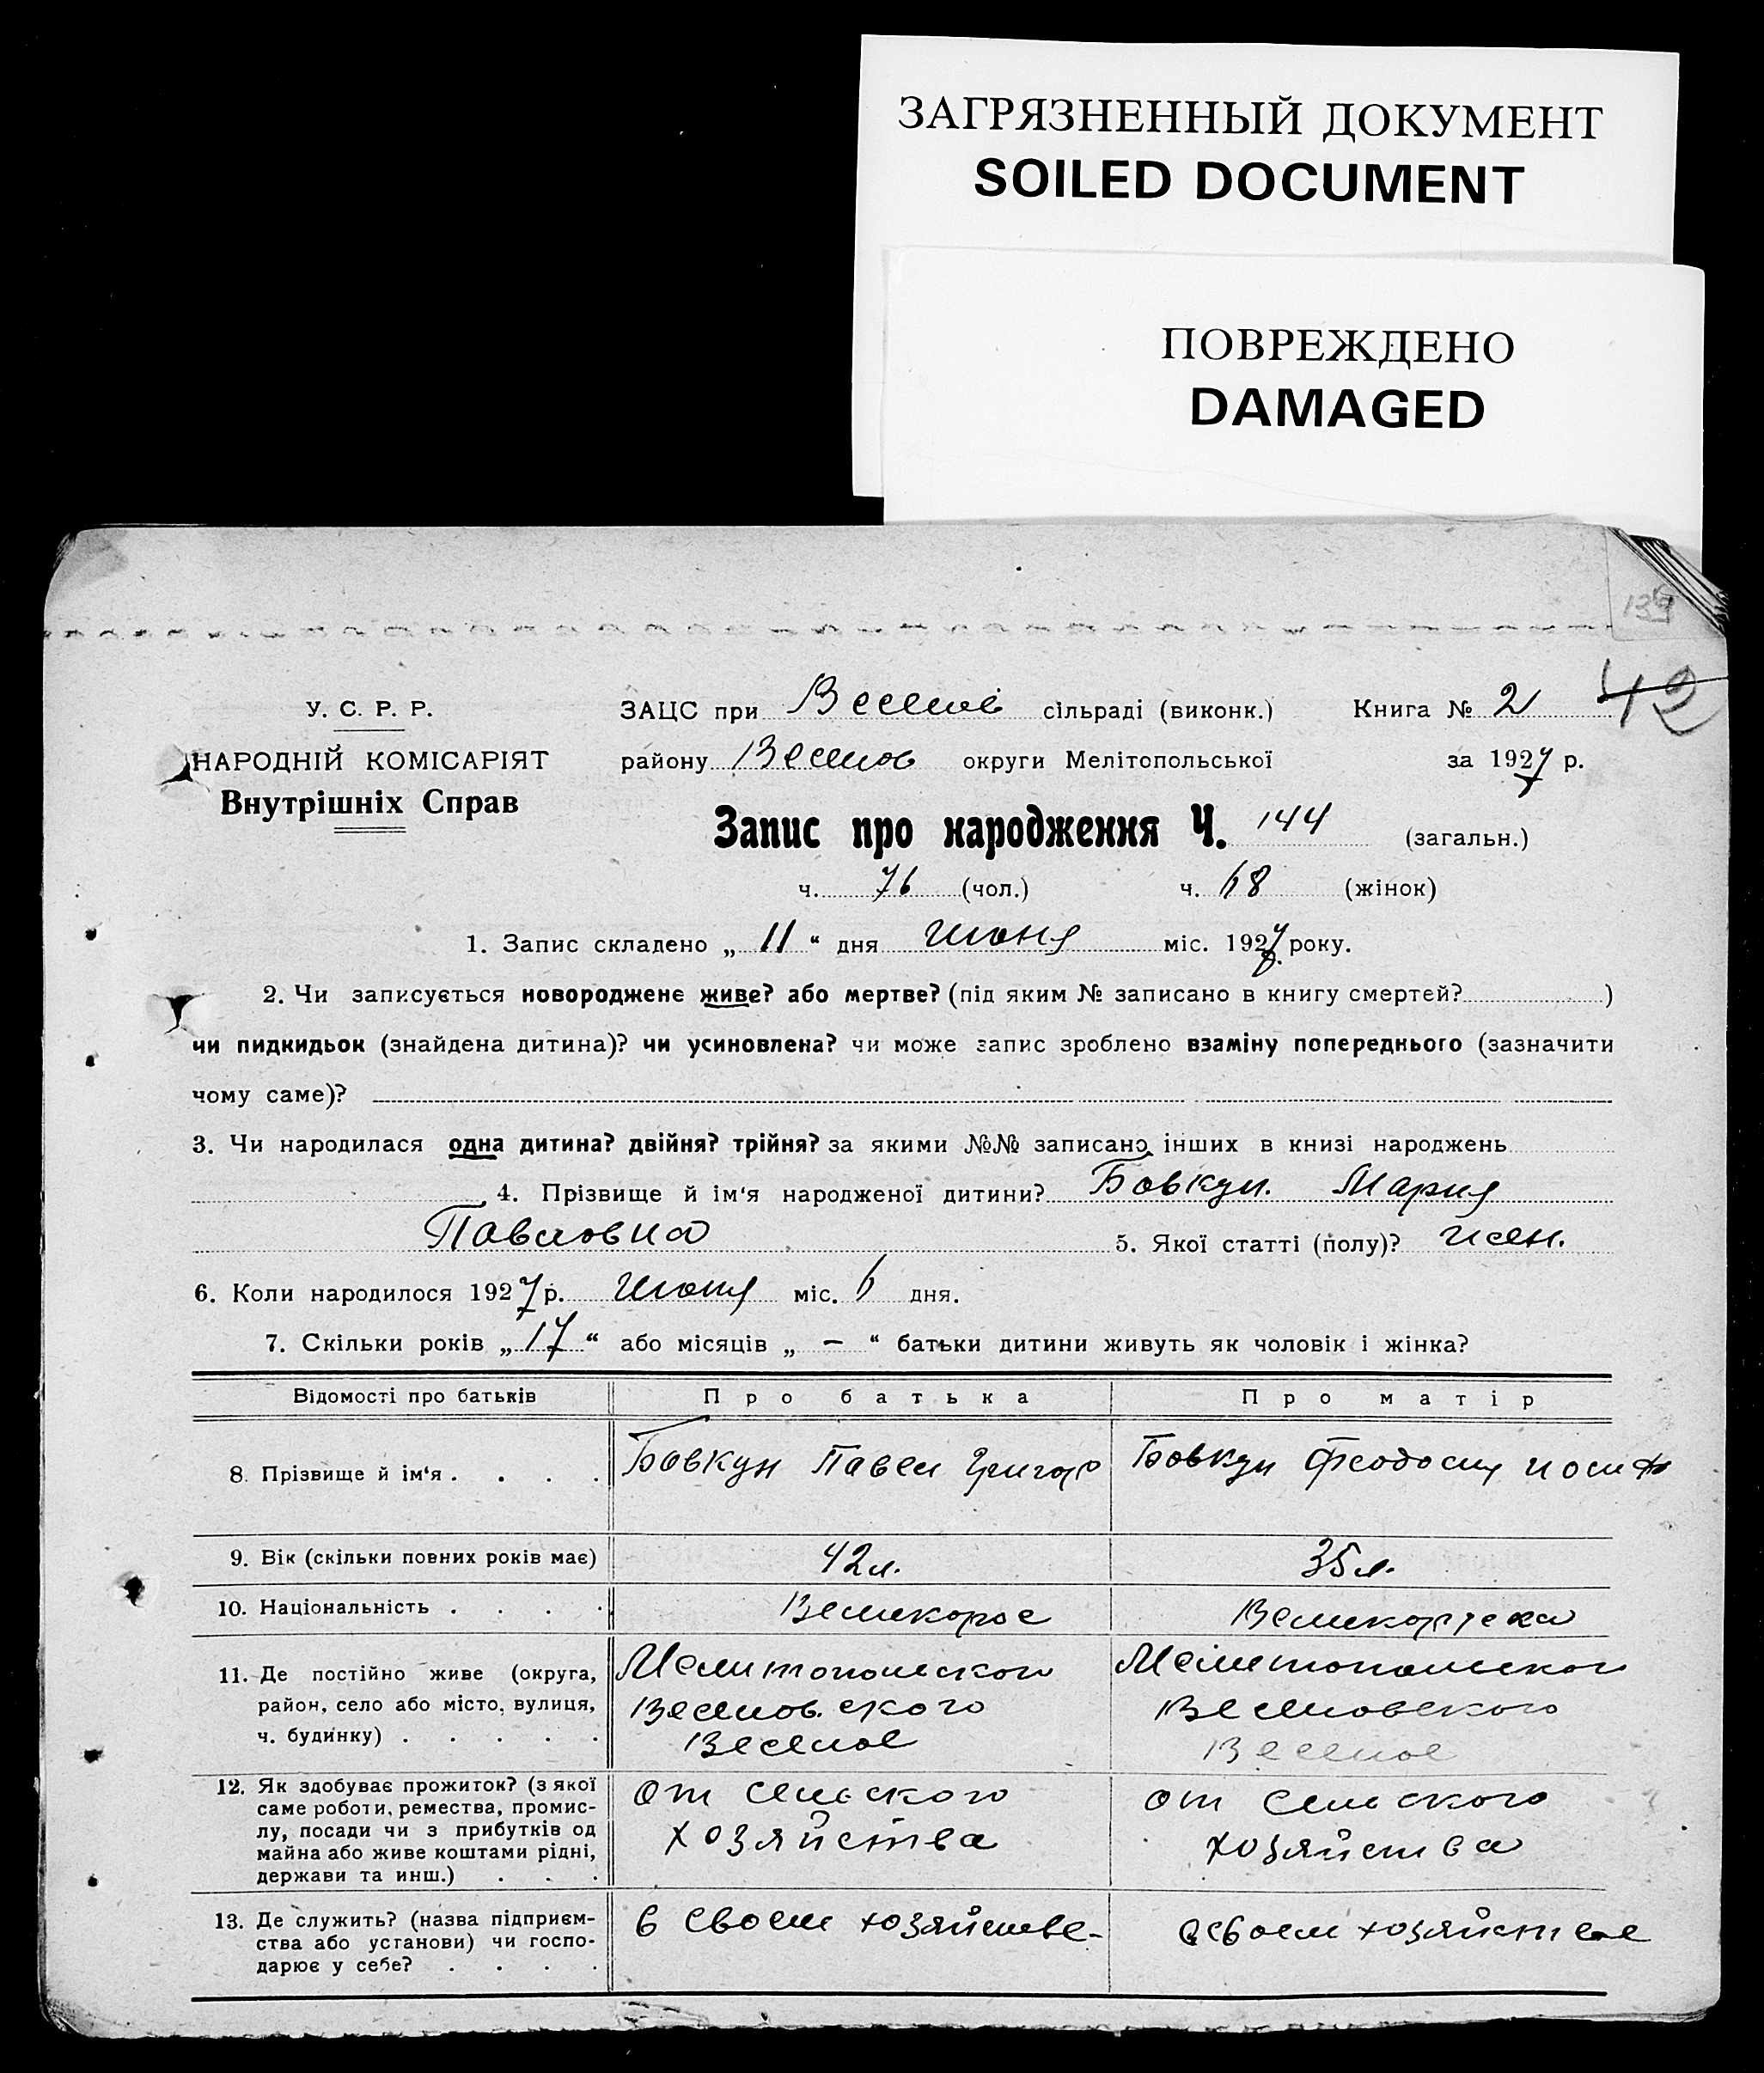 ЗАГРЯЗНЕННЫЙ ДОКУМЕНТ
SOILED DOCUMENT
ПОВРЕЖДЕНО
DAMAGED
42
У. С. Р. Р.
НАРОДНІЙ КОМІСАРІЯТ
Внутрішніх Справ
ЗАЦС при Веселов сільраді (виконк.) Книга № 2
району Веселов округи Мелітопольської за 1927 р.
Запис про народження Ч. 144 (загальн.)
ч. 76 (чол.) ч. 68 (жінок)
1. Запис складено „ 11 “ дня Июня міс. 1927 року.
2. Чи записується новороджене живе? або мертве? (під яким № записано в книгу смертей? )
чи пидкидьок (знайдена дитина)? чи усиновлена? чи може запис зроблено взаміну попереднього (зазначити
чому саме)?
3. Чи народилася одна дитина? двійня? трійня? за якими №№ записано інших в книзі народжень
4. Прізвище й ім‘я народженої дитини? Бовкун. Мария
Павловна 5. Якої статті (полу)? жен.
6. Коли народилося 1927 р. Июня міс. 6 дня.
7. Скільки років „ 17 “ або місяців „ — “ батьки дитини живуть як чоловік і жінка?
Відомості про батьків Про батька Про матір
8. Прізвище й ім‘я . . . . Бовкун Павел Григор Бовкун Феодосия иосиф
9. Вік (скільки повних років має) 42 л. 35 л.
10. Національність . . . . Великорос Великорусска
11. Де постійно живе (округа, Мелитопольского Мелитопольского
район, село або місто, вулиця, Веселовского Веселовского
ч. будинку) . . . . . Веселое Веселое
12. Як здобуває прожиток? (з якої от сельского от сельского
саме роботи, ремества, промис-
лу, посади чи з прибутків од хозяйства хозяйства
майна або живе коштами рідні,
держави та инш.) . . .
13. Де служить? (назва підприєм- в своем хозяйстве- в своем хозяйстве
ства або установи) чи госпо-
дарює у себе? . . . .